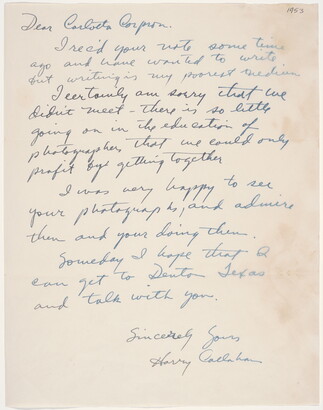 1953
Dear Carlotta Corpron.
I rec'd your note some time
ago and have wanted to write
but writing is my poorest medium
I certainly am sorry that we
didn't meet - there is so little
going on in the education of
photographers that we could only
profit by getting together
I was very happy to see
your photographs, and admire
them and your doing them.
Someday I hope that I
can get to Denton Texas
and talk with you.
Sincerely Yours
Harry Callahan